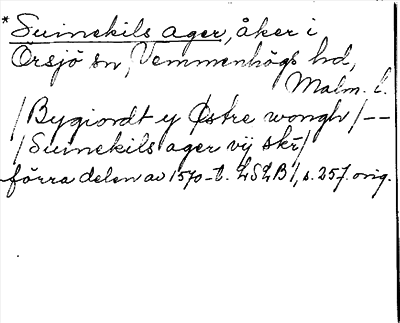 *Suinekils ager, åker i
Örsjö sn, Vemmenhögs hd,
Malm. l.
/Bygiordt y Østre wongh/--
/Suinekils ager vij skr/
förra delen av 1570-t. LSLB 1, s. 257. orig.